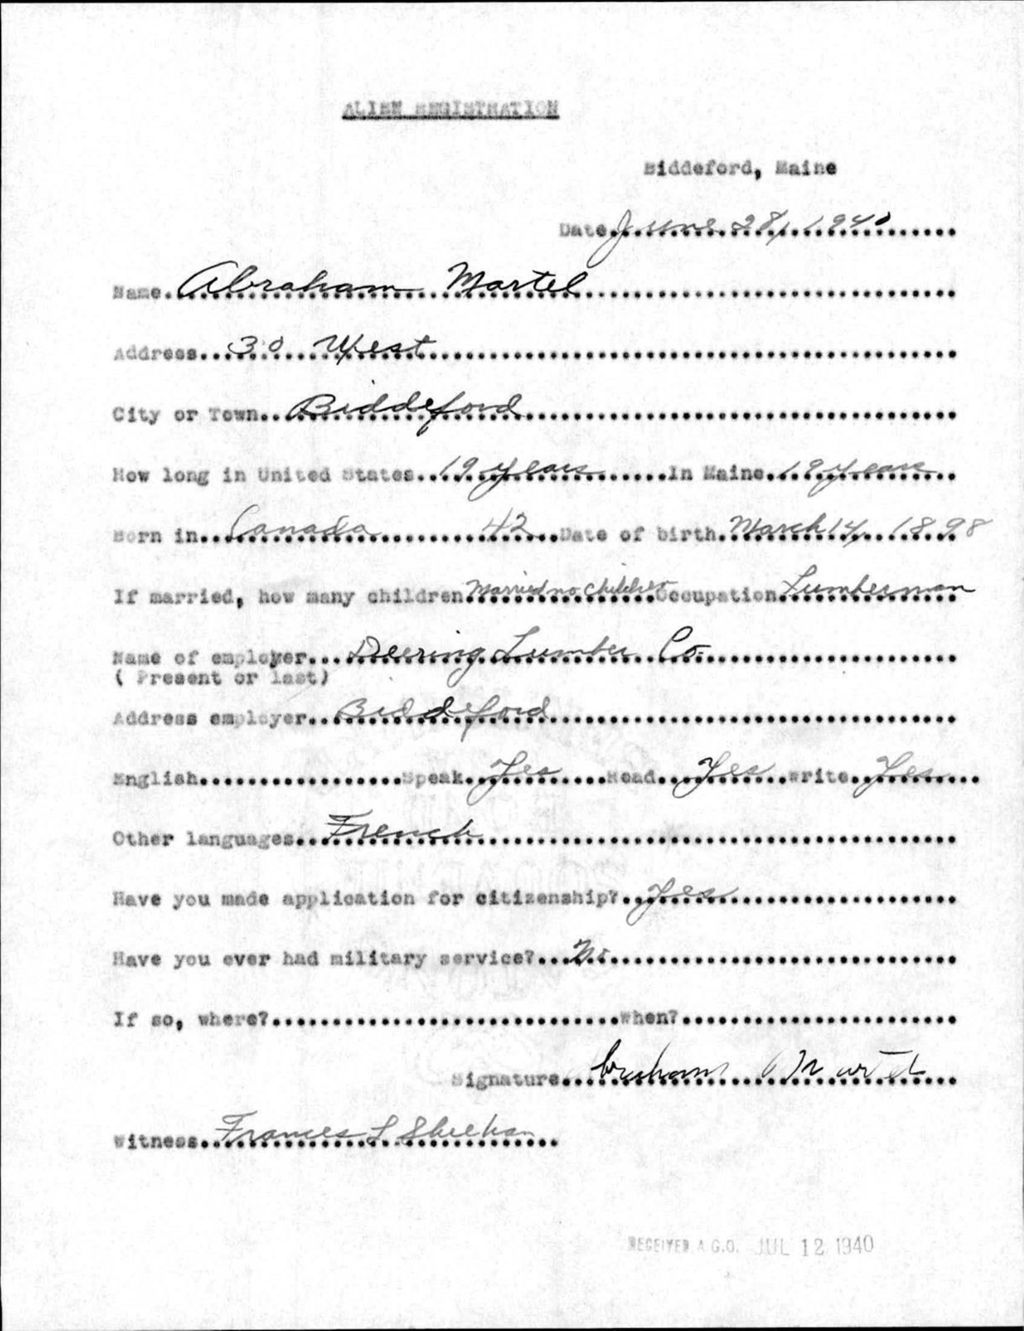 ALIEN REGISTRATION
Biddeford, Maine
Date June 28, 1940
Name Abraham Martel
Address 30 West
City or Town Biddeford
How long in United States 19 years In Maine 19 years
Born in Canada 42 Date of birth March 14, 1898
If married, how many children Married no children Occupation Lumberman
Name of employer Deering Lumber Co.
( Present or last)
Address employer Biddeford
English Speak Yes Read Yes Write Yes
Other languages French
Have you made application for citizenship? Yes
Have you ever had military service? No
If so, where? When?
Signature Abraham Martel
Witness Frances L Sheehan
RECEIVED A.G.O. JUL 12 1940